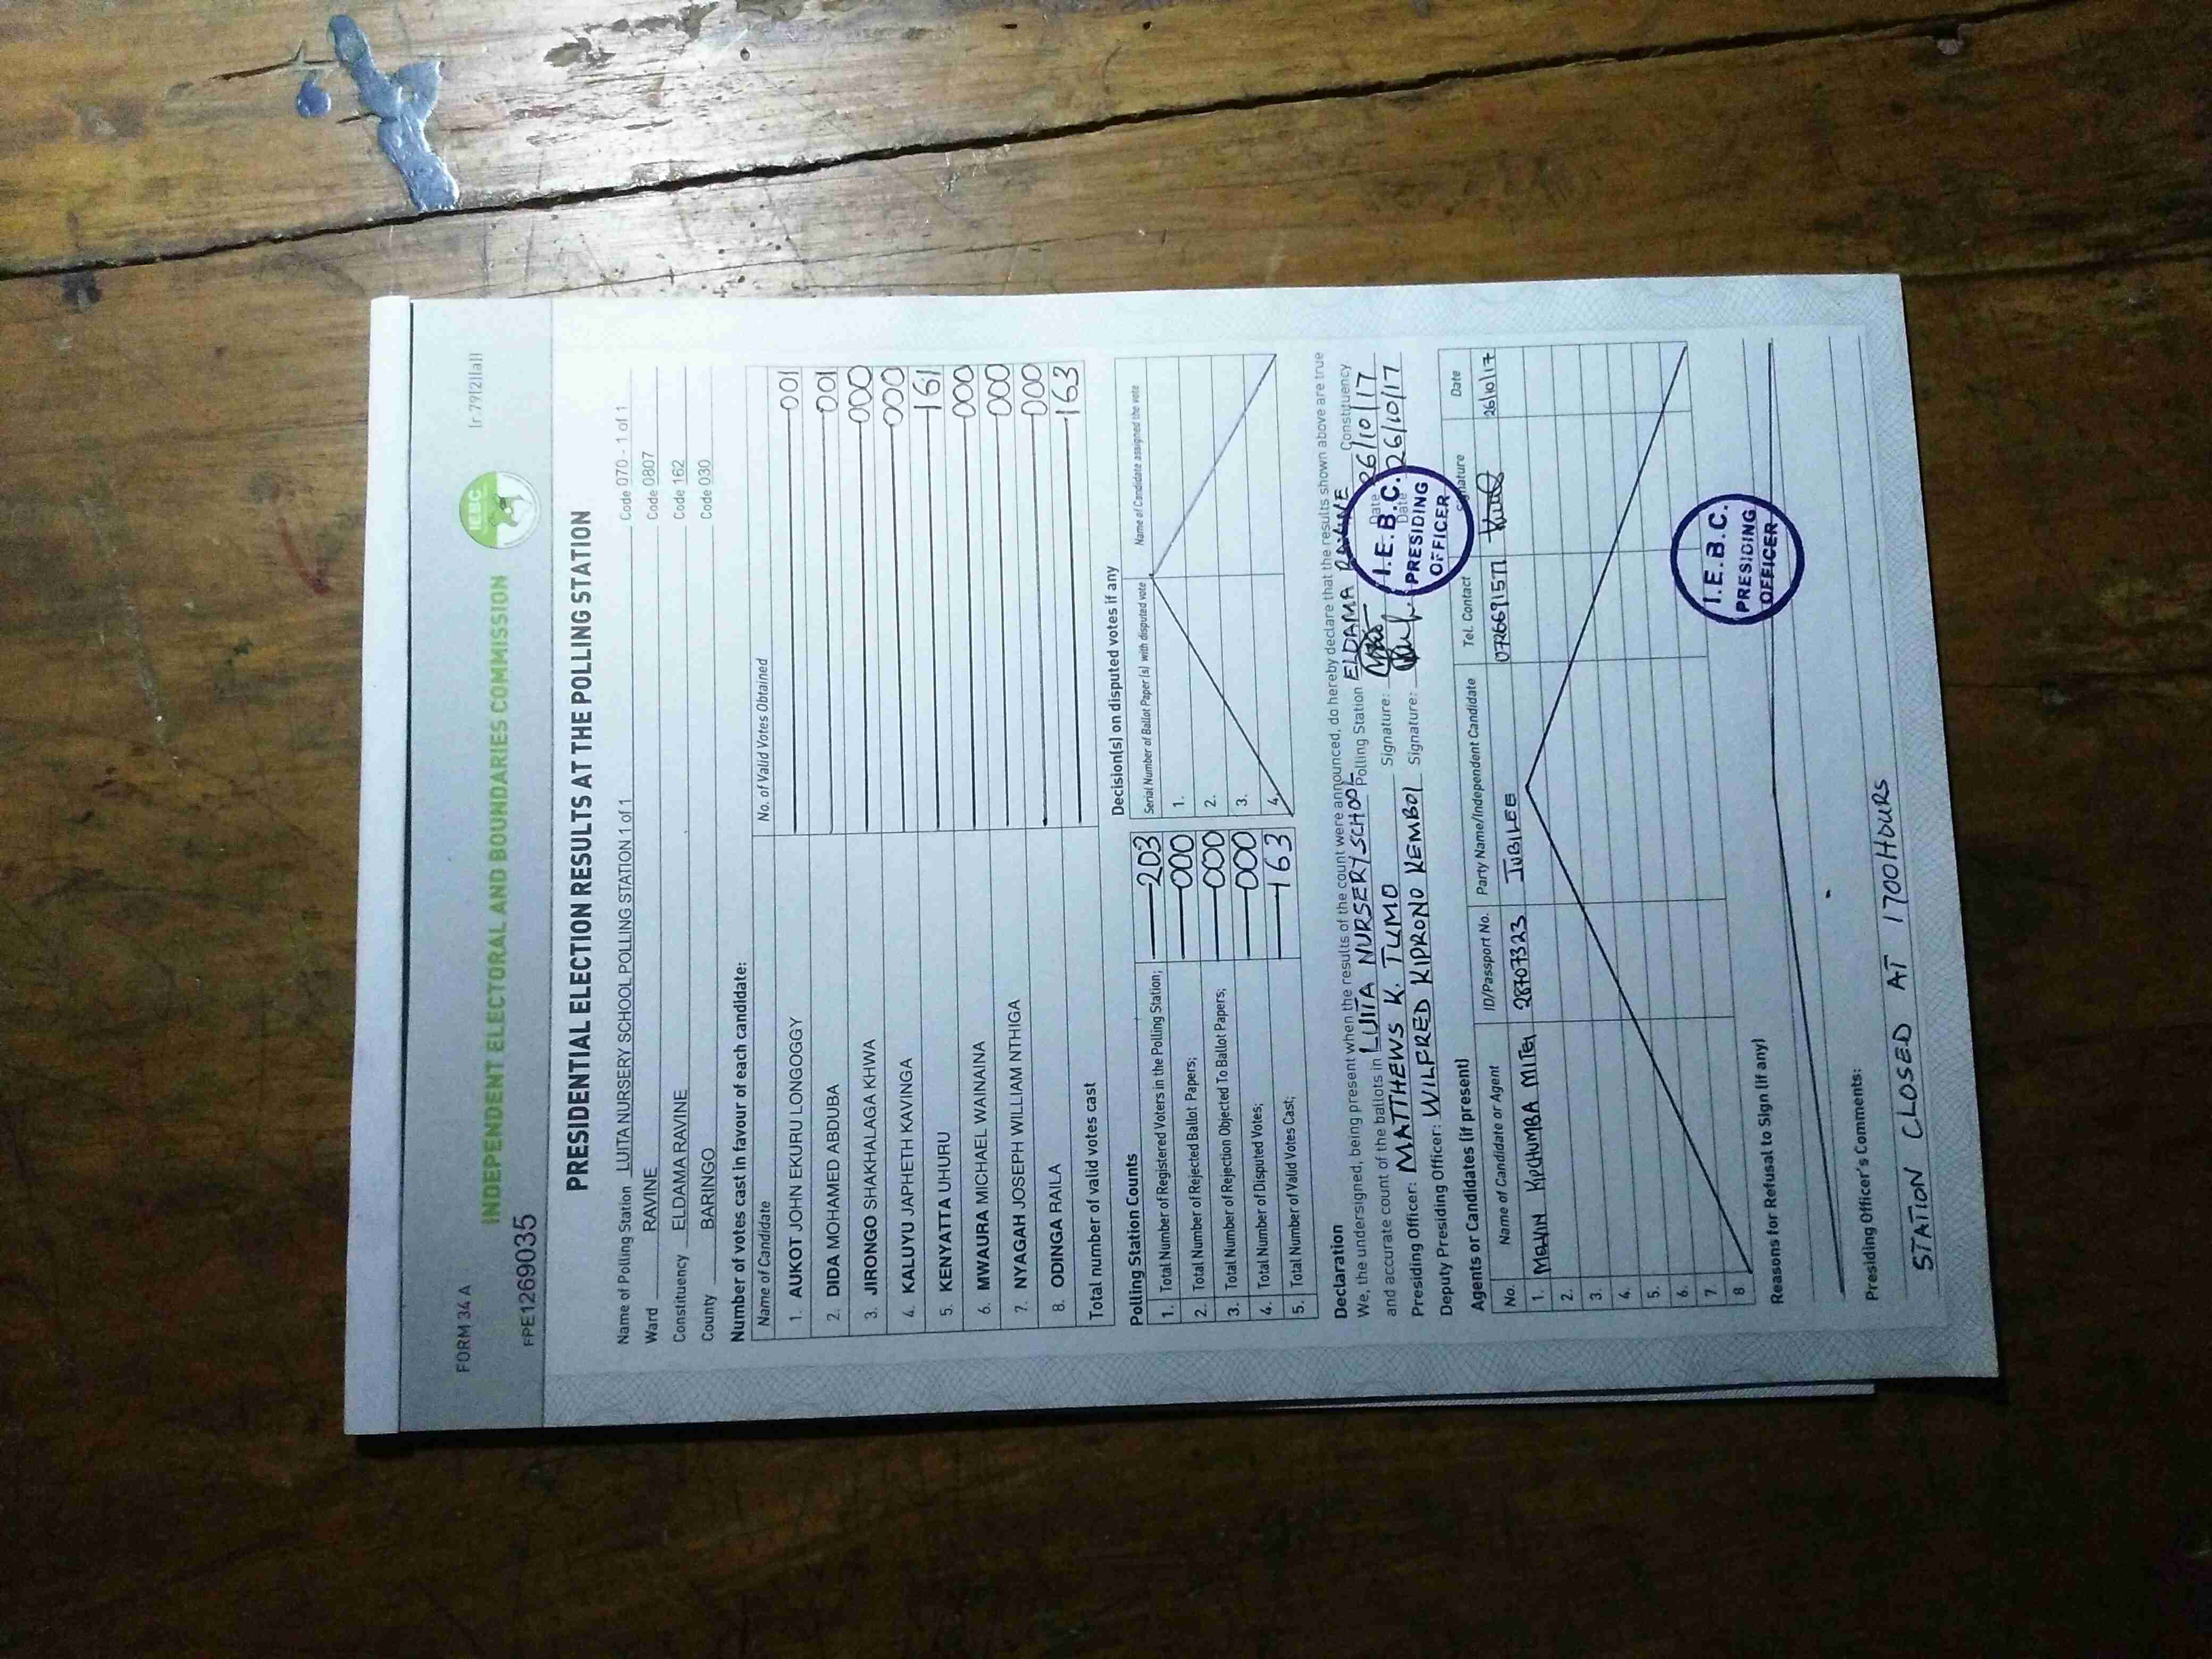 FORM 34 A
[r.79(2)(a)]
IEBC
INDEPENDENT ELECTORAL AND BOUNDARIES COMMISSION
FPE1269035
PRESIDENTIAL ELECTION RESULTS AT THE POLLING STATION
Name of Polling Station LUITA NURSERY SCHOOL POLLING STATION 1 of 1 Code 070 - 1 of 1
Ward RAVINE Code 0807
Constituency ELDAMA RAVINE Code 162
County BARINGO Code 030
Number of votes cast in favour of each candidate:
Name of Candidate No. of Valid Votes Obtained
1. AUKOT JOHN EKURU LONGOGGY 001
2. DIDA MOHAMED ABDUBA 001
3. JIRONGO SHAKHALAGA KHWA 000
4. KALUYU JAPHETH KAVINGA 000
5. KENYATTA UHURU 161
6. MWAURA MICHAEL WAINAINA 000
7. NYAGAH JOSEPH WILLIAM NTHIGA 000
8. ODINGA RAILA 000
Total number of valid votes cast 163
Polling Station Counts
1. Total Number of Registered Voters in the Polling Station; 203
2. Total Number of Rejected Ballot Papers; 000
3. Total Number of Rejection Objected To Ballot Papers; 000
4. Total Number of Disputed Votes; 000
5. Total Number of Valid Votes Cast; 163
Decision(s) on disputed votes if any
Serial Number of Ballot Paper (s) with disputed vote Name of Candidate assigned the vote
1.
2.
3.
4.
Declaration
We, the undersigned, being present when the results of the count were announced, do hereby declare that the results shown above are true
and accurate count of the ballots in LUITA NURSERY SCHOOL Polling Station ELDAMA RAVINE Constituency
Presiding Officer: MATTHEWS K. TUMO Signature: Date 26/10/17
Deputy Presiding Officer: WILFRED KIPRONO KEMBOI Signature: Date 26/10/17
I.E.B.C.
PRESIDING
OFFICER
Agents or Candidates (if present)
No. Name of Candidate or Agent ID/Passport No. Party Name/Independent Candidate Tel. Contact Signature Date
1. MELVIN KIPCHUMBA MITEI 28707323 JUBILEE 0726691577 26/10/17
2.
3.
4.
5.
6.
7.
8
I.E.B.C.
PRESIDING
OFFICER
Reasons for Refusal to Sign (if any)
Presiding Officer's Comments:
STATION CLOSED AT 1700HOURS